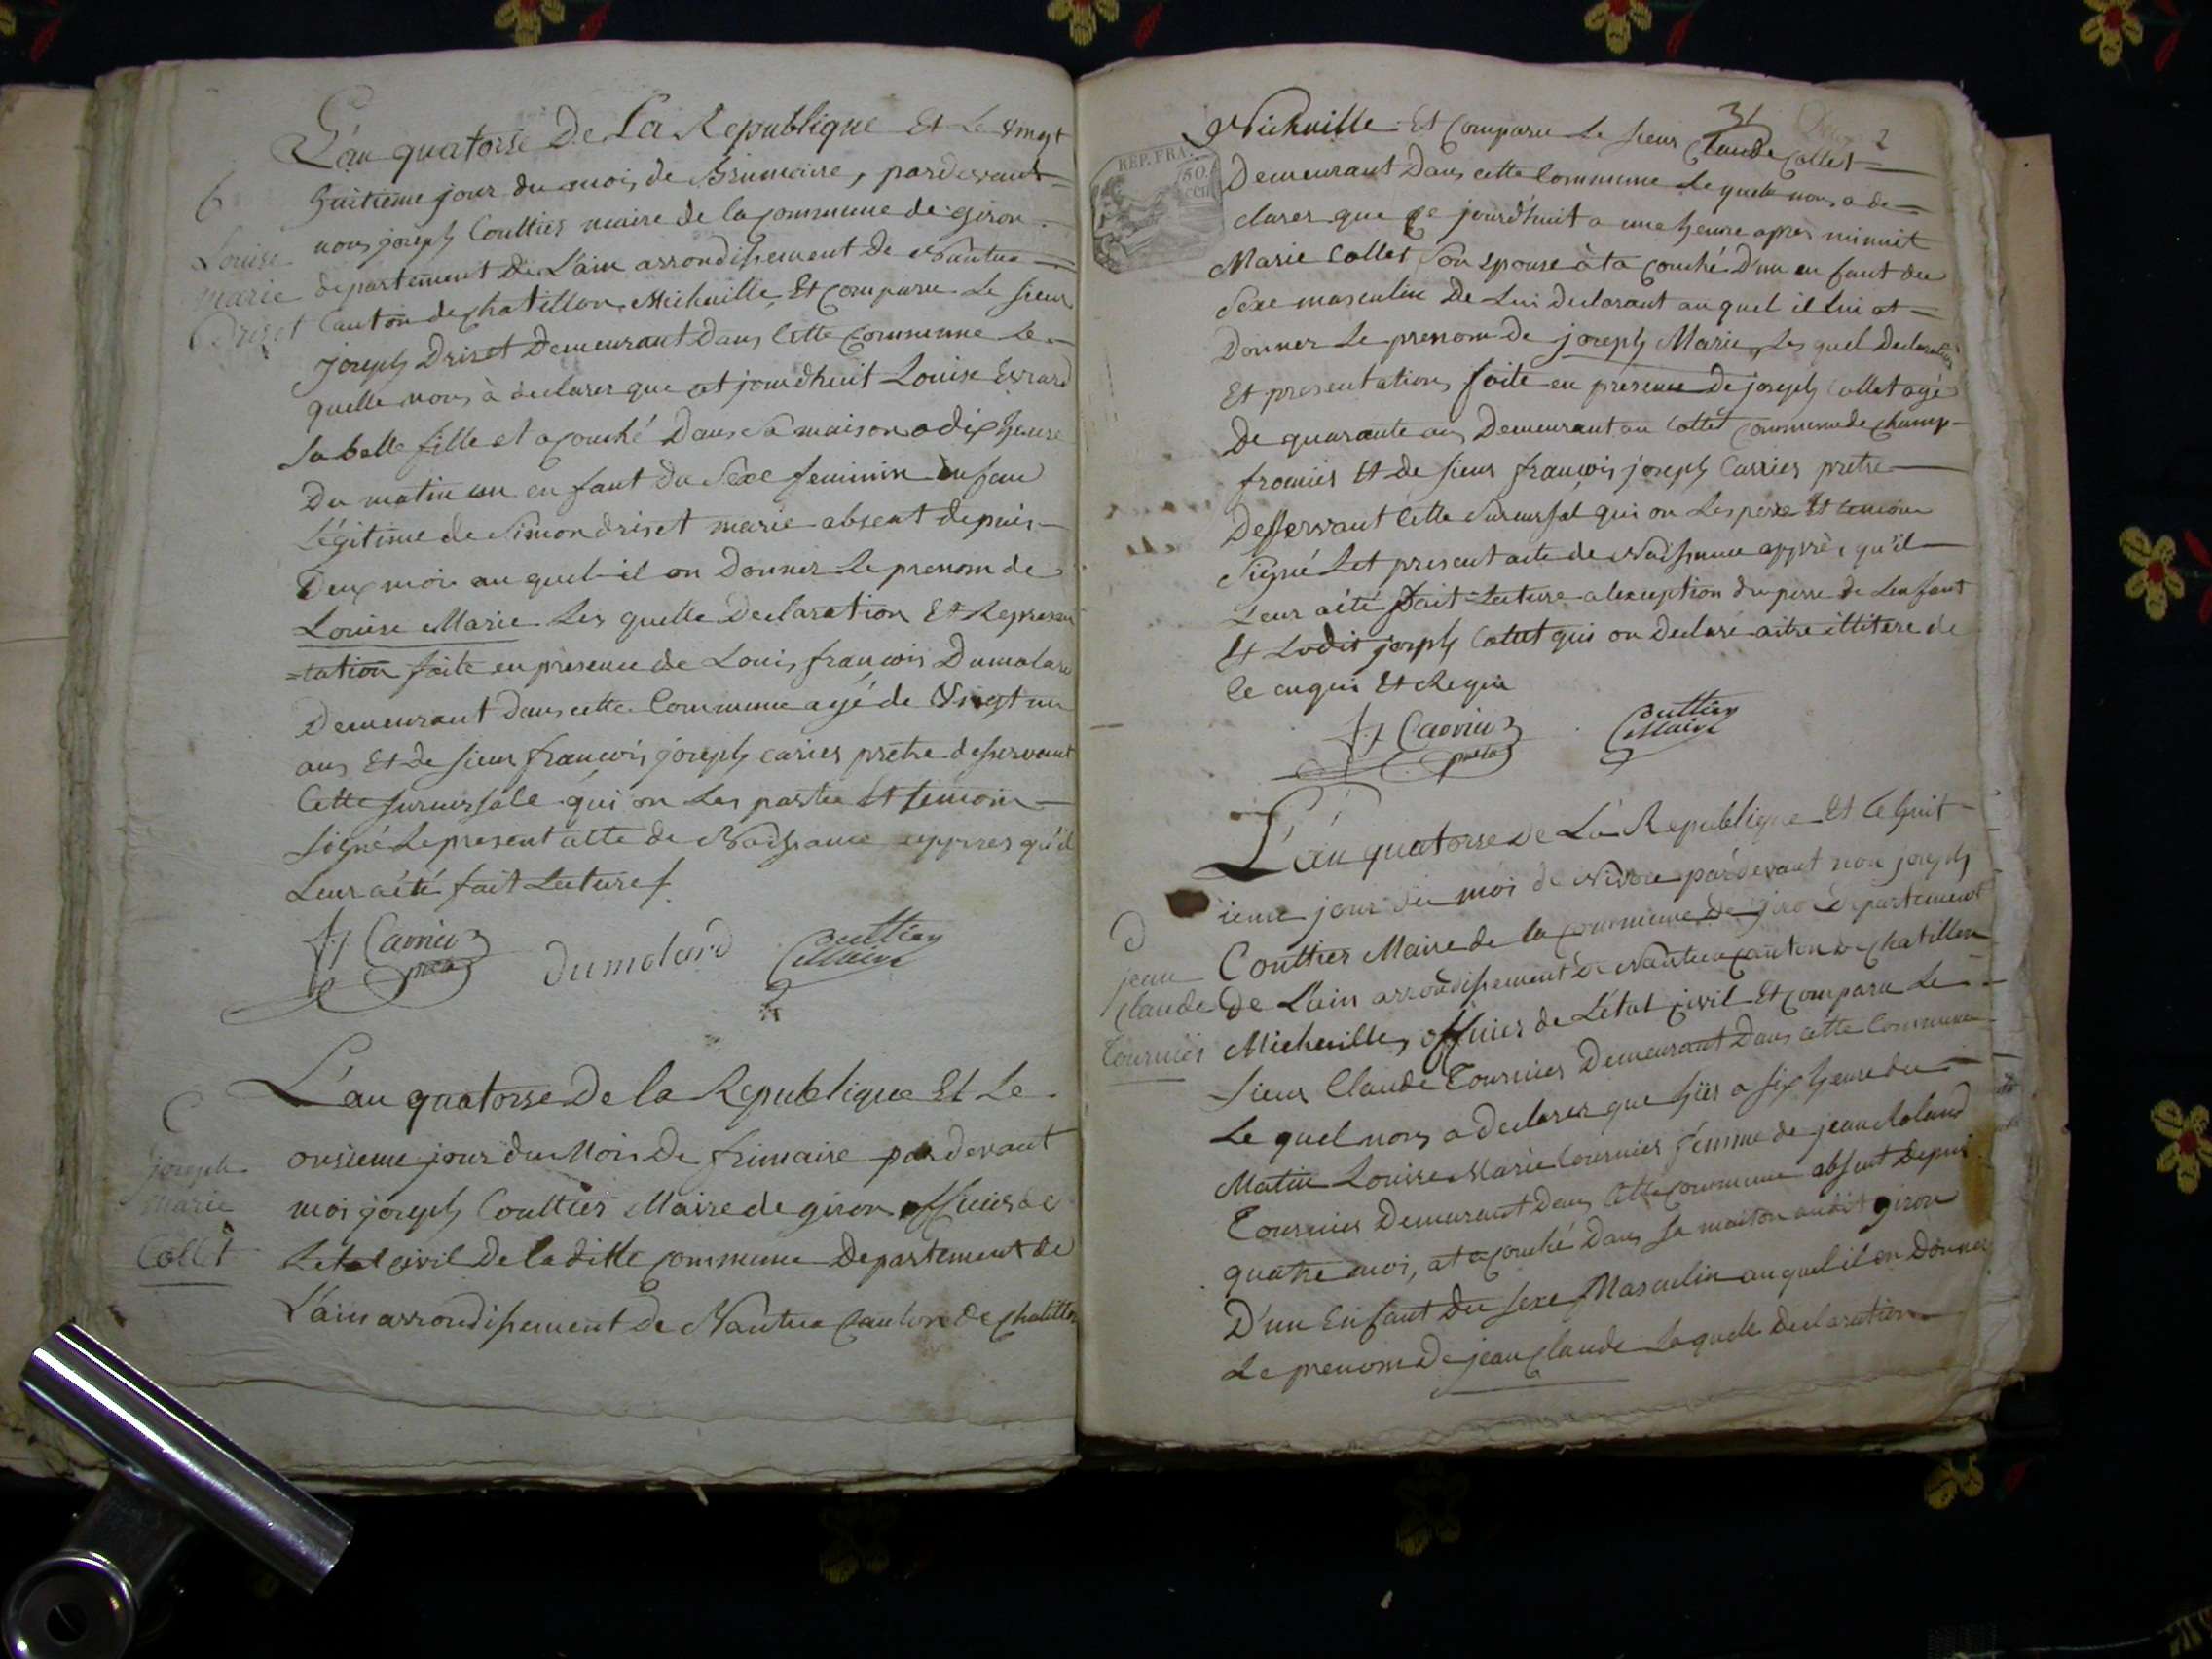 L'an quatorse De La Republique Et Le vingt
huitieme jour du mois de Brumaire, pardevant
nous joseph Coultier maire de la commune de giron
departement de L'ain arrondissement de Nantua
Canton de chatillon Michaille, Et comparu Le sieur
joseph Driset Demeurant Dans Cette Commune Le
quelle nous à declarer que cet jourdhuit Louise Evrard
sa belle fille et acouché Dans Sa maison a dix heure
Du matin un en fant Du Sexe feminin enfan
Légitime de Simon driset marie absent depuis
Deux mois au quel il on Donner Le prenom de
Louise Marie Les quelle Declaration Et Represen
=tation faite en presence de Louis françois Dumolard
Demeurant dans cette Commune agé de Vingt un
ans Et de sieur françois joseph carier pretre desservant
Cette sucursale qui on Les partie Et temoin
signé Le present acte de Naissance appres qu'il
Leur aété fait Lecture
6
Louise
marie
Driset
fj Carrier
pretre
dumolard
Coultier
Maire
L'an quatorse De la Republique Et Le
onsieme jour du Mois De frimaire par devant
moi joseph Coultier Maire de giron officier de
Letat civil De laditte commune Departement de
L'ain arrondissement de Nantua Canton de chatillon
C
joseph
marie
Collet
31
2
REP. FRA.
50
Michaille Et comparu Le sieur Claude Collet
Demeurant Dans cette Commune Le quelle nous a de=
clarer que ce jourd'huit a une heure apres minuit
Marie Collet Son Epouse à ta couché D'un en fant du
Sexe masculin De Lui Declarant au quel il lui at
Donner Le prenom De joseph Marie, Les quel Declaration
Et presentation faite en presence De joseph Collet agé
De quarante ans Demeurant au Collet Commune de champ-
fromier Et de sieur françois joseph Carrier pretre
Desservant Cette Sucursal qui on Les pere Et temoin
Signé Let present acte de Naissance apprès qu'il
Leur aété fait Lecture a lexception du pere de Lenfant
Et Ledit joseph Collet qui on Declaré aitre illitere de
Ce enquis Et Requis
fj Carrier
pretre
Coultier
Maire
L'an quatorse De La Republique Et Le huit
ieme jour du moi de Nivose pardevant nou joseph
Coultier Maire de la commune De giro Departement
De L'ain arrondissement De Nantua canton De chatillon
Micheille, officier de L'état civil Et comparu Le
Sieur Claude Tournier Demeurant Dans cette Commune
Le quel nous a Declarer que hier a six heure du
Matin Louise Marie Tournier femme de jean Roland
Tournier Demeurant Dans Cette commune absent Depuis
quatre moi, at acouché Dans sa maison audit giron
D'un Enfant Du sexe Masculin auquel il on Donner
Le prenom De jean Claude Laquelle Declaration
D
jean
Claude
Tournier